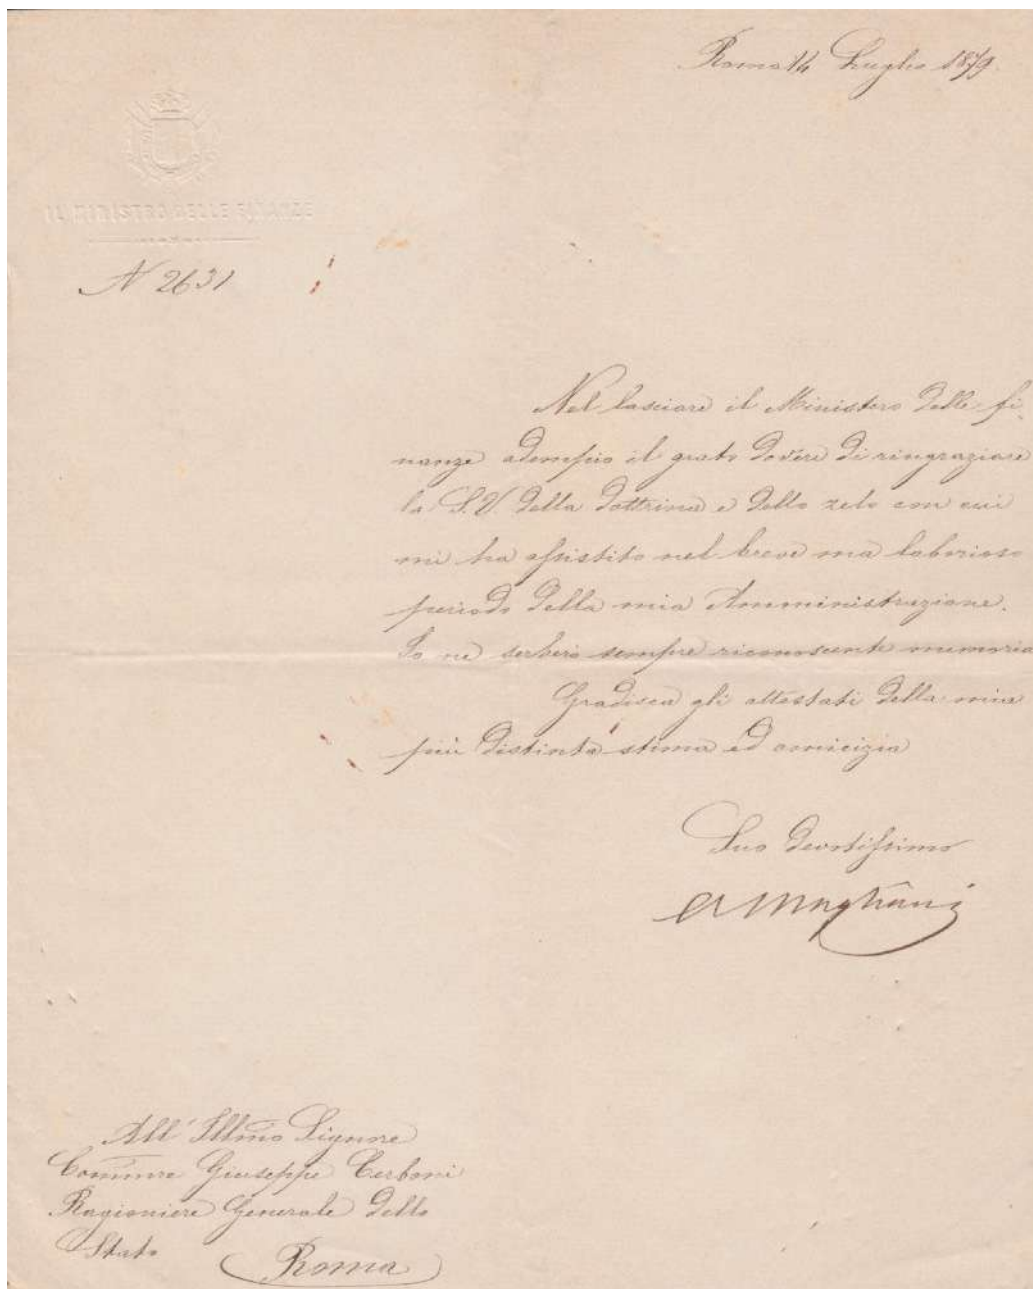 Roma 14 Luglio 1879.
IL MINISTRO DELLE FINANZE
N 2631
Nel lasciare il Ministero delle fi-
nanze adempio il grato dovere di ringraziare
la S.V. della dottrina e dello zelo con cui
mi ha assistito nel breve ma laborioso
periodo della mia Amministrazione.
Io ne serberò sempre riconoscente memoria
Gradisca gli attestati della mia
più distinta stima ed amicizia
Suo devotissimo
A Magliani
All' Illmo Signore
Commre Giuseppe Cerboni
Ragioniere Generale dello
Stato
Roma